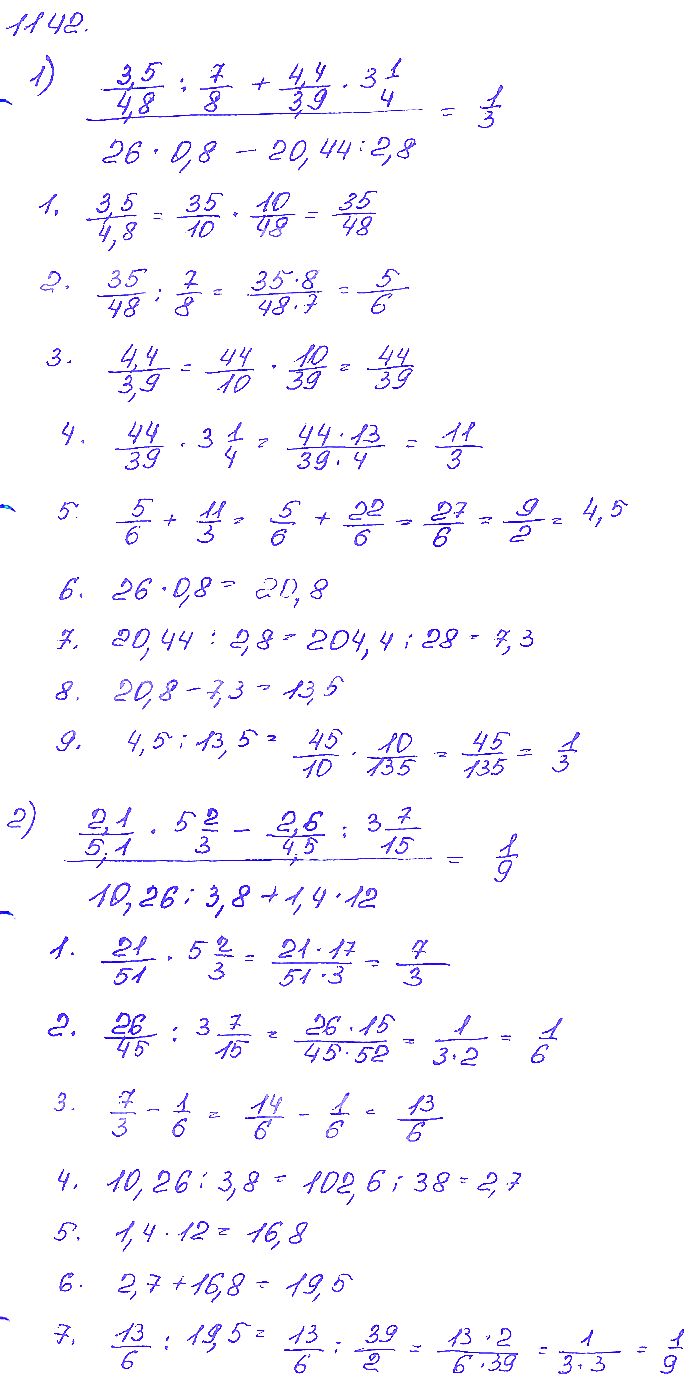 1142.
1) (3,5/4,8 : 7/8 + 4,4/3,9 · 3 1/4) / (26 · 0,8 - 20,44 : 2,8) = 1/3
1. 3,5/4,8 = 35/10 · 10/48 = 35/48
2. 35/48 : 7/8 = 35·8/48·7 = 5/6
3. 4,4/3,9 = 44/10 · 10/39 = 44/39
4. 44/39 · 3 1/4 = 44·13/39·4 = 11/3
5. 5/6 + 11/3 = 5/6 + 22/6 = 27/6 = 9/2 = 4,5
6. 26 · 0,8 = 20,8
7. 20,44 : 2,8 = 204,4 : 28 = 7,3
8. 20,8 - 7,3 = 13,5
9. 4,5 : 13,5 = 45/10 · 10/135 = 45/135 = 1/3
2) (2,1/5,1 · 5 2/3 - 2,6/4,5 : 3 7/15) / (10,26 : 3,8 + 1,4 · 12) = 1/9
1. 21/51 · 5 2/3 = 21·17/51·3 = 7/3
2. 26/45 : 3 7/15 = 26·15/45·52 = 1/3·2 = 1/6
3. 7/3 - 1/6 = 14/6 - 1/6 = 13/6
4. 10,26 : 3,8 = 102,6 : 38 = 2,7
5. 1,4 · 12 = 16,8
6. 2,7 + 16,8 = 19,5
7. 13/6 : 19,5 = 13/6 : 39/2 = 13·2/6·39 = 1/3·3 = 1/9